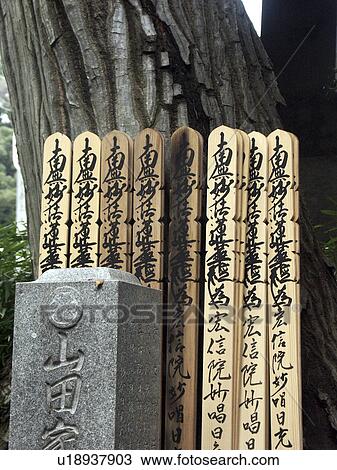 南無妙法蓮華経為宏信院妙唱日
南無妙法蓮華経為宏信院妙唱日
南無妙法蓮華経為宏信院妙唱日
南無妙法蓮華経為宏信院妙唱
南無妙法蓮華経
南無妙法蓮華経
南無妙法蓮華経
南無妙法蓮華経
山田家
FOTOSEARCH
u18937903 www.fotosearch.com